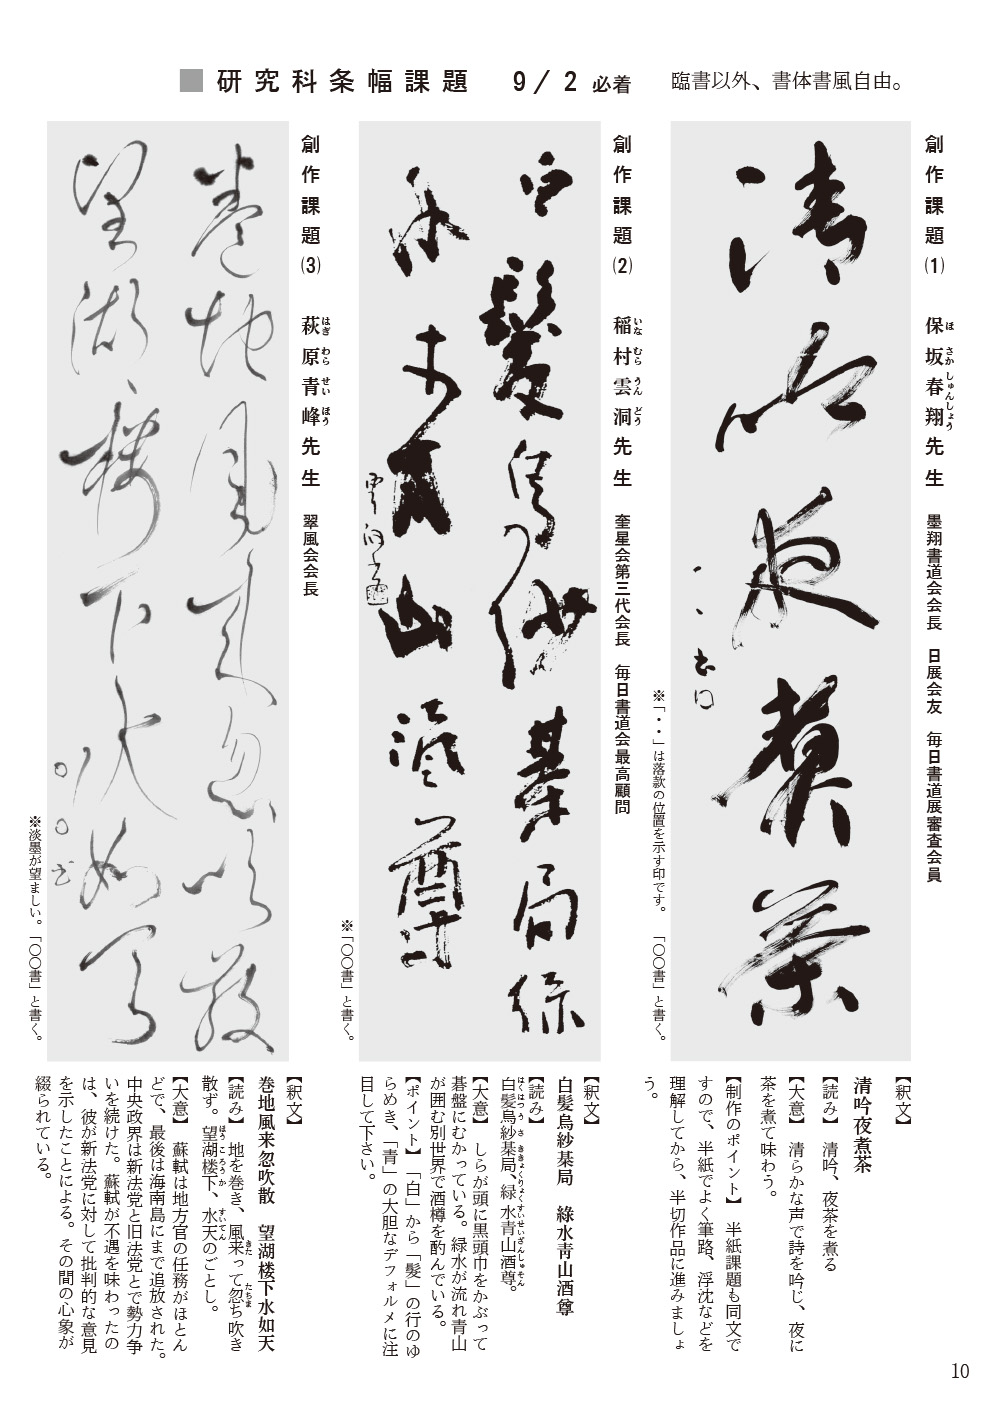 ■研究科条幅課題　9/2 必着　臨書以外、書体書風自由。
創作課題(1)　保坂春翔先生　墨翔書道会会長　日展会友　毎日書道展審査会員
ほ さか しゅんしょう
清吟夜煮茶
、、書口
※「・・」は落款の位置を示す印です。「〇〇書」と書く。
【釈文】
清吟夜煮茶
【読み】　清吟、夜茶を煮る
【大意】　清らかな声で詩を吟じ、夜に
茶を煮て味わう。
【制作のポイント】　半紙課題も同文で
すので、半紙でよく筆路、浮沈などを
理解してから、半切作品に進みましょ
う。
創作課題(2)　稲村雲洞先生　奎星会第三代会長　毎日書道会最高顧問
いな むら うん どう
白髪烏紗棊局緑
水青山酒尊
※「〇〇書」と書く。
【釈文】
白髪烏紗棊局　綠水靑山酒尊
【読み】
はくはつ う さ ききょくりょくすいせいざんしゅそん
白髪烏紗棊局、緑水青山酒尊。
【大意】　しらが頭に黒頭巾をかぶって
碁盤にむかっている。緑水が流れ青山
が囲む別世界で酒樽を酌んでいる。
【ポイント】　「白」から「髪」の行のゆ
らめき、「青」の大胆なデフォルメに注
目して下さい。
創作課題(3)　萩原青峰先生　翠風会会長
はぎ わら せい ほう
巻地風来忽吹散
望湖楼下水如天
〇〇書
※淡墨が望ましい。「〇〇書」と書く。
【釈文】
巻地風来忽吹散　望湖楼下水如天
【読み】　地を巻き、風来って忽ち吹き
きた たちま
散ず。望湖楼下、水天のごとし。
ぼう こ ろう か すいてん
【大意】　蘇軾は地方官の任務がほとん
どで、最後は海南島にまで追放された。
中央政界は新法党と旧法党とで勢力争
いを続けた。蘇軾が不遇を味わったの
は、彼が新法党に対して批判的な意見
を示したことによる。その間の心象が
綴られている。
10